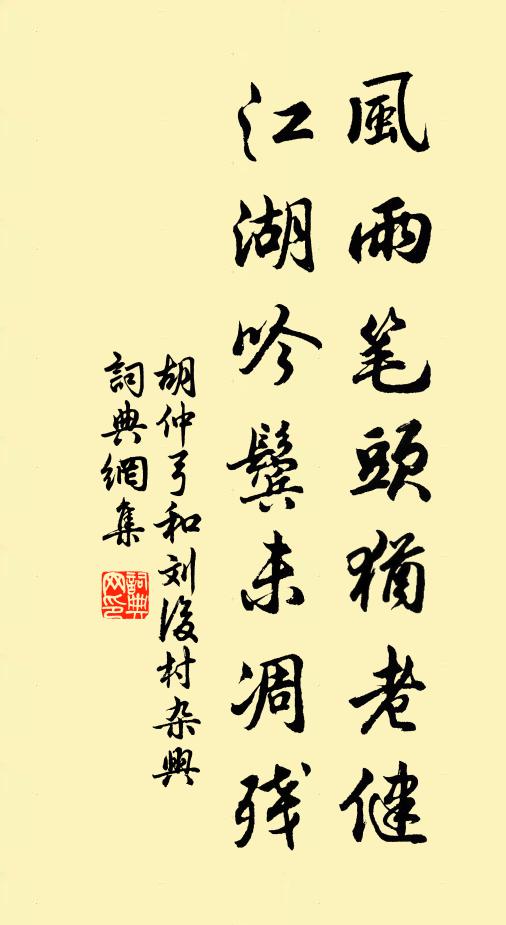 風雨笔頭猶老健
江湖吟鬢未凋残
胡仲弓和刘後村杂興
詞典網集
詞典网印